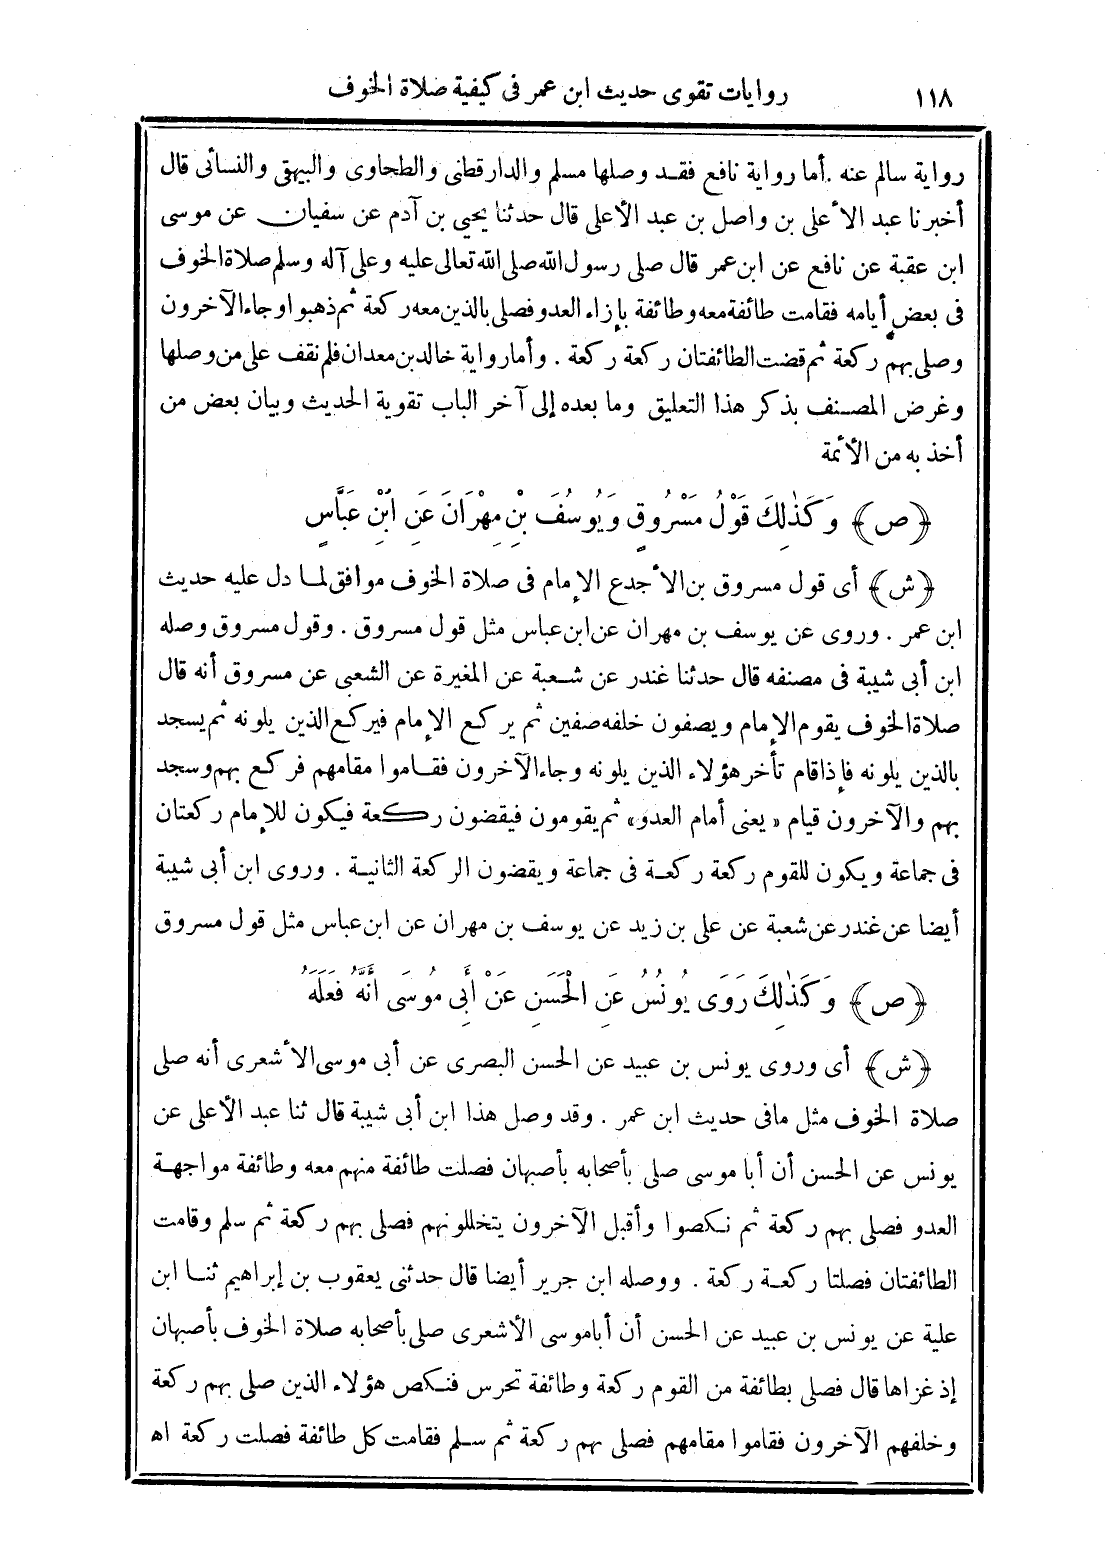 ١١٨ روايات تقوى حديث ابن عمر فى كيفية صلاة الخوف
رواية سالم عنه . أما رواية نافع فقد وصلها مسلم والدارقطنى والطحاوى والبيهقى والنسائى قال
أخبرنا عبد الأعلى بن واصل بن عبد الأعلى قال حدثنا يحيى بن آدم عن سفيان عن موسى
ابن عقبة عن نافع عن ابن عمر قال صلى رسول الله صلى الله تعالى عليه وعلى آله وسلم صلاة الخوف
فى بعض أيامه فقامت طائفة معه وطائفة بإزاء العدو فصلى بالذين معه ركعة ثم ذهبوا وجاء الآخرون
وصلى بهم ركعة ثم قضت الطائفتان ركعة ركعة . وأما رواية خالد بن معدان فلم نقف على من وصلها
وغرض المصنف بذكر هذا التعليق وما بعده إلى آخر الباب تقوية الحديث وبيان بعض من
أخذ به من الأئمة
﴿ص﴾ وَكَذٰلِكَ قَوْلُ مَسْرُوقٍ وَيُوسُفَ بْنِ مِهْرَانَ عَنِ ابْنِ عَبَّاسٍ
﴿ش﴾ أى قول مسروق بن الأجدع الإمام فى صلاة الخوف موافق لما دل عليه حديث
ابن عمر . وروى عن يوسف بن مهران عن ابن عباس مثل قول مسروق . وقول مسروق وصله
ابن أبى شيبة فى مصنفه قال حدثنا غندر عن شعبة عن المغيرة عن الشعبى عن مسروق أنه قال
صلاة الخوف يقوم الإمام ويصفون خلفه صفين ثم يركع الإمام فيركع الذين يلونه ثم يسجد
بالذين يلونه فإذا قام تأخر هؤلاء الذين يلونه وجاء الآخرون فقاموا مقامهم فركع بهم وسجد
بهم والآخرون قيام «يعنى أمام العدو» ثم يقومون فيقضون ركعة فيكون للإمام ركعتان
فى جماعة ويكون للقوم ركعة ركعة فى جماعة ويقضون الركعة الثانية . وروى ابن أبى شيبة
أيضا عن غندر عن شعبة عن على بن زيد عن يوسف بن مهران عن ابن عباس مثل قول مسروق
﴿ص﴾ وَكَذٰلِكَ رَوَى يُونُسُ عَنِ الْحَسَنِ عَنْ أَبِى مُوسَى أَنَّهُ فَعَلَهُ
﴿ش﴾ أى وروى يونس بن عبيد عن الحسن البصرى عن أبى موسى الأشعرى أنه صلى
صلاة الخوف مثل مافى حديث ابن عمر . وقد وصل هذا ابن أبى شيبة قال ثنا عبد الأعلى عن
يونس عن الحسن أن أبا موسى صلى بأصحابه بأصبهان فصلت طائفة منهم معه وطائفة مواجهة
العدو فصلى بهم ركعة ثم نكصوا وأقبل الآخرون يتخللونهم فصلى بهم ركعة ثم سلم وقامت
الطائفتان فصلتا ركعة ركعة . ووصله ابن جرير أيضا قال حدثنى يعقوب بن إبراهيم ثنا ابن
علية عن يونس بن عبيد عن الحسن أن أباموسى الأشعرى صلى بأصحابه صلاة الخوف بأصبهان
إذ غزاها قال فصلى بطائفة من القوم ركعة وطائفة تحرس فنكص هؤلاء الذين صلى بهم ركعة
وخلفهم الآخرون فقاموا مقامهم فصلى بهم ركعة ثم سلم فقامت كل طائفة فصلت ركعة اهـ